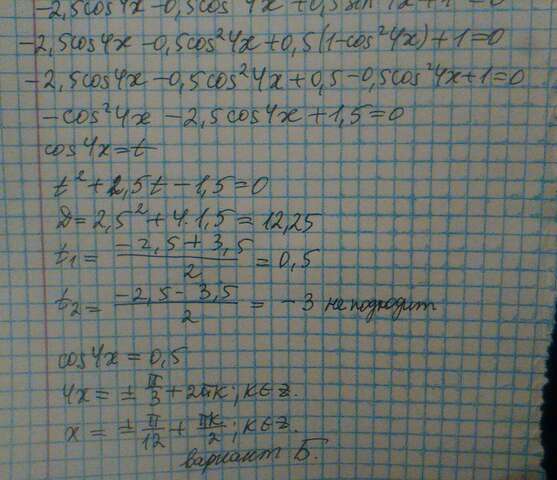 -2,5cos4x -0,5cos²4x + 0,5 sin²4x + 1 = 0
-2,5cos4x - 0,5cos²4x + 0,5(1-cos²4x) + 1 = 0
-2,5cos4x - 0,5cos²4x + 0,5 - 0,5cos²4x + 1 = 0
-cos²4x - 2,5cos4x + 1,5 = 0
cos4x = t
t² + 2,5t - 1,5 = 0
D = 2,5² + 4·1,5 = 12,25
t₁ = (-2,5 + 3,5)/2 = 0,5
t₂ = (-2,5 - 3,5)/2 = -3 не подходит
cos4x = 0,5
4x = ± π/3 + 2πk; k∈z.
x = ± π/12 + πk/2; k∈z.
вариант Б.